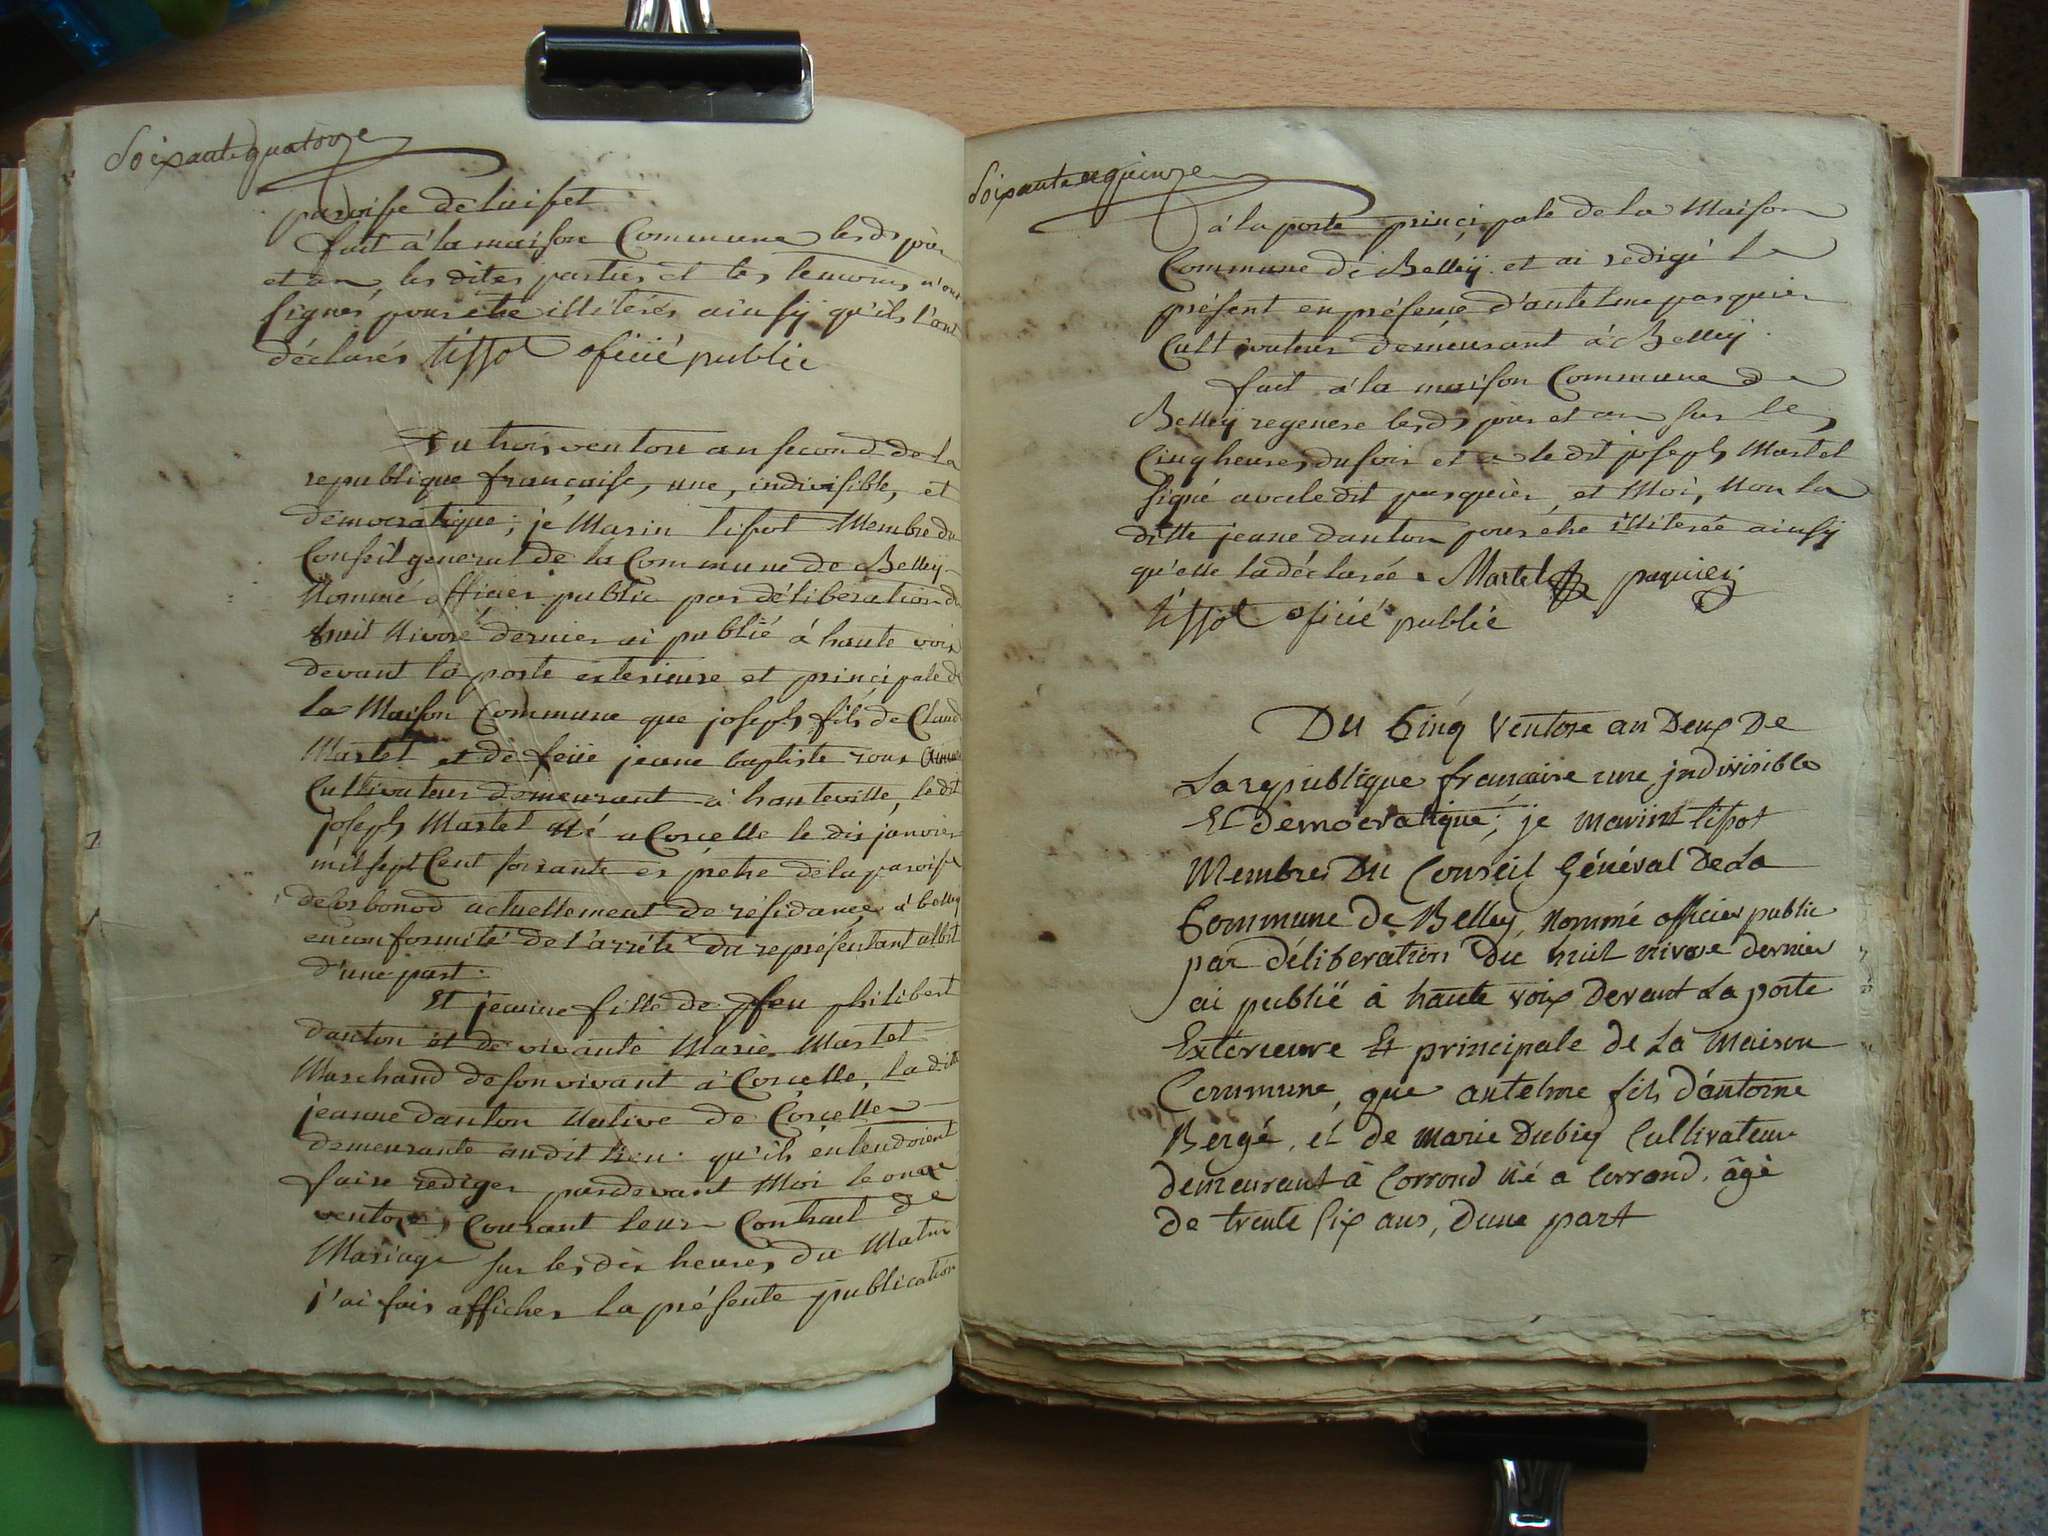 Soixante quatorze
paroisse de Luisset
fait à la maison Commune lesds jour
et an, les dites parties et les temoins n'ont
signés pour étre illiterés ainsÿ qu'ils l'ont
déclarés tissot oficié public
Du trois ventose an second de la
republique françaisse, une, indivisible, et
démocratique; je Marin tissot Membre du
Conseil general de la Commune de Belleÿ
Nommé officier public par déliberation du
huit Nivose dernier ai publié à haute voix
devant la porte exterieure et principale de
la Maison Commune que joseph fils de Claude
Martel et de feüe jeane baptiste roux
Cultivateur demeurant à hauteville, le dit
joseph Martel Né a Corcelle le dix janvier
mil sept Cent soixante ex prétre de la paroisse
de Corbonod actuellement de résidance à belleÿ
en conformité de l'arrété du représentant albit
d'une part.
Et jeanne fille de feu philibert
danton et de vivante Marie Martel
Marchand de son vivant à Corcelle, la ditte
jeanne danton Native de Corcelle
demeurante audit lieu. qu'ils entendoient
faire rediger pardevant Moi le onze
ventose Courant leur Contract de
Mariage sur les dix heures du Matin
j'ai fais afficher la présente publication
Soixante et quinze
à la porte principale de la Maison
Commune de Belleÿ et ai redigé le
présent en présence d'antelme pasquier
Cultivateur demeurant à Belleÿ.
fait à la maison Commune de
Belleÿ regeneré lesds jour et an sur les
Cinq heures du soir et a le dit joseph Martel
signé avec ledit pasquier, et Moi, Non la
ditte jeane danton pour étre illiterée ainsÿ
qu'elle la déclarée. Martel paquier
tissot oficié public
Du Cinq Ventose an Deux De
La republique francaise une jndivisible
Et démocratique; je marint tissot
Membre Du Conseil Général De La
Commune de Belley, Nommé officier public
par déliberation du huit nivose dernier
ai publié à haute voix Devant La porte
Exterieure Et principale de La Maison
Commune, que antelme fils d'antoine
Bergé, et de marie Dubiez Cultivateur
demeurant à Corrond né a Corrand, âgé
de trente six ans, Dune part